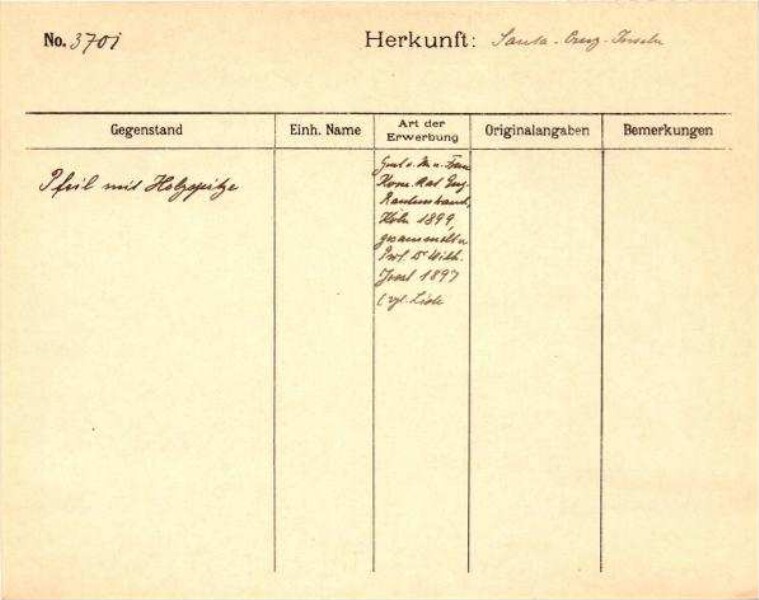 No. 3701
Herkunft: Santa-Cruz-Inseln
Gegenstand
Einh. Name
Art der
Erwerbung
Originalangaben
Bemerkungen
Pfeil mit Holzspitze
Frau
Kom. Rat Eug.
Rautenstrauch,
Köln 1899,
gesammelt v.
Prof. Dr Wilh.
Joest 1897
(vgl. Liste